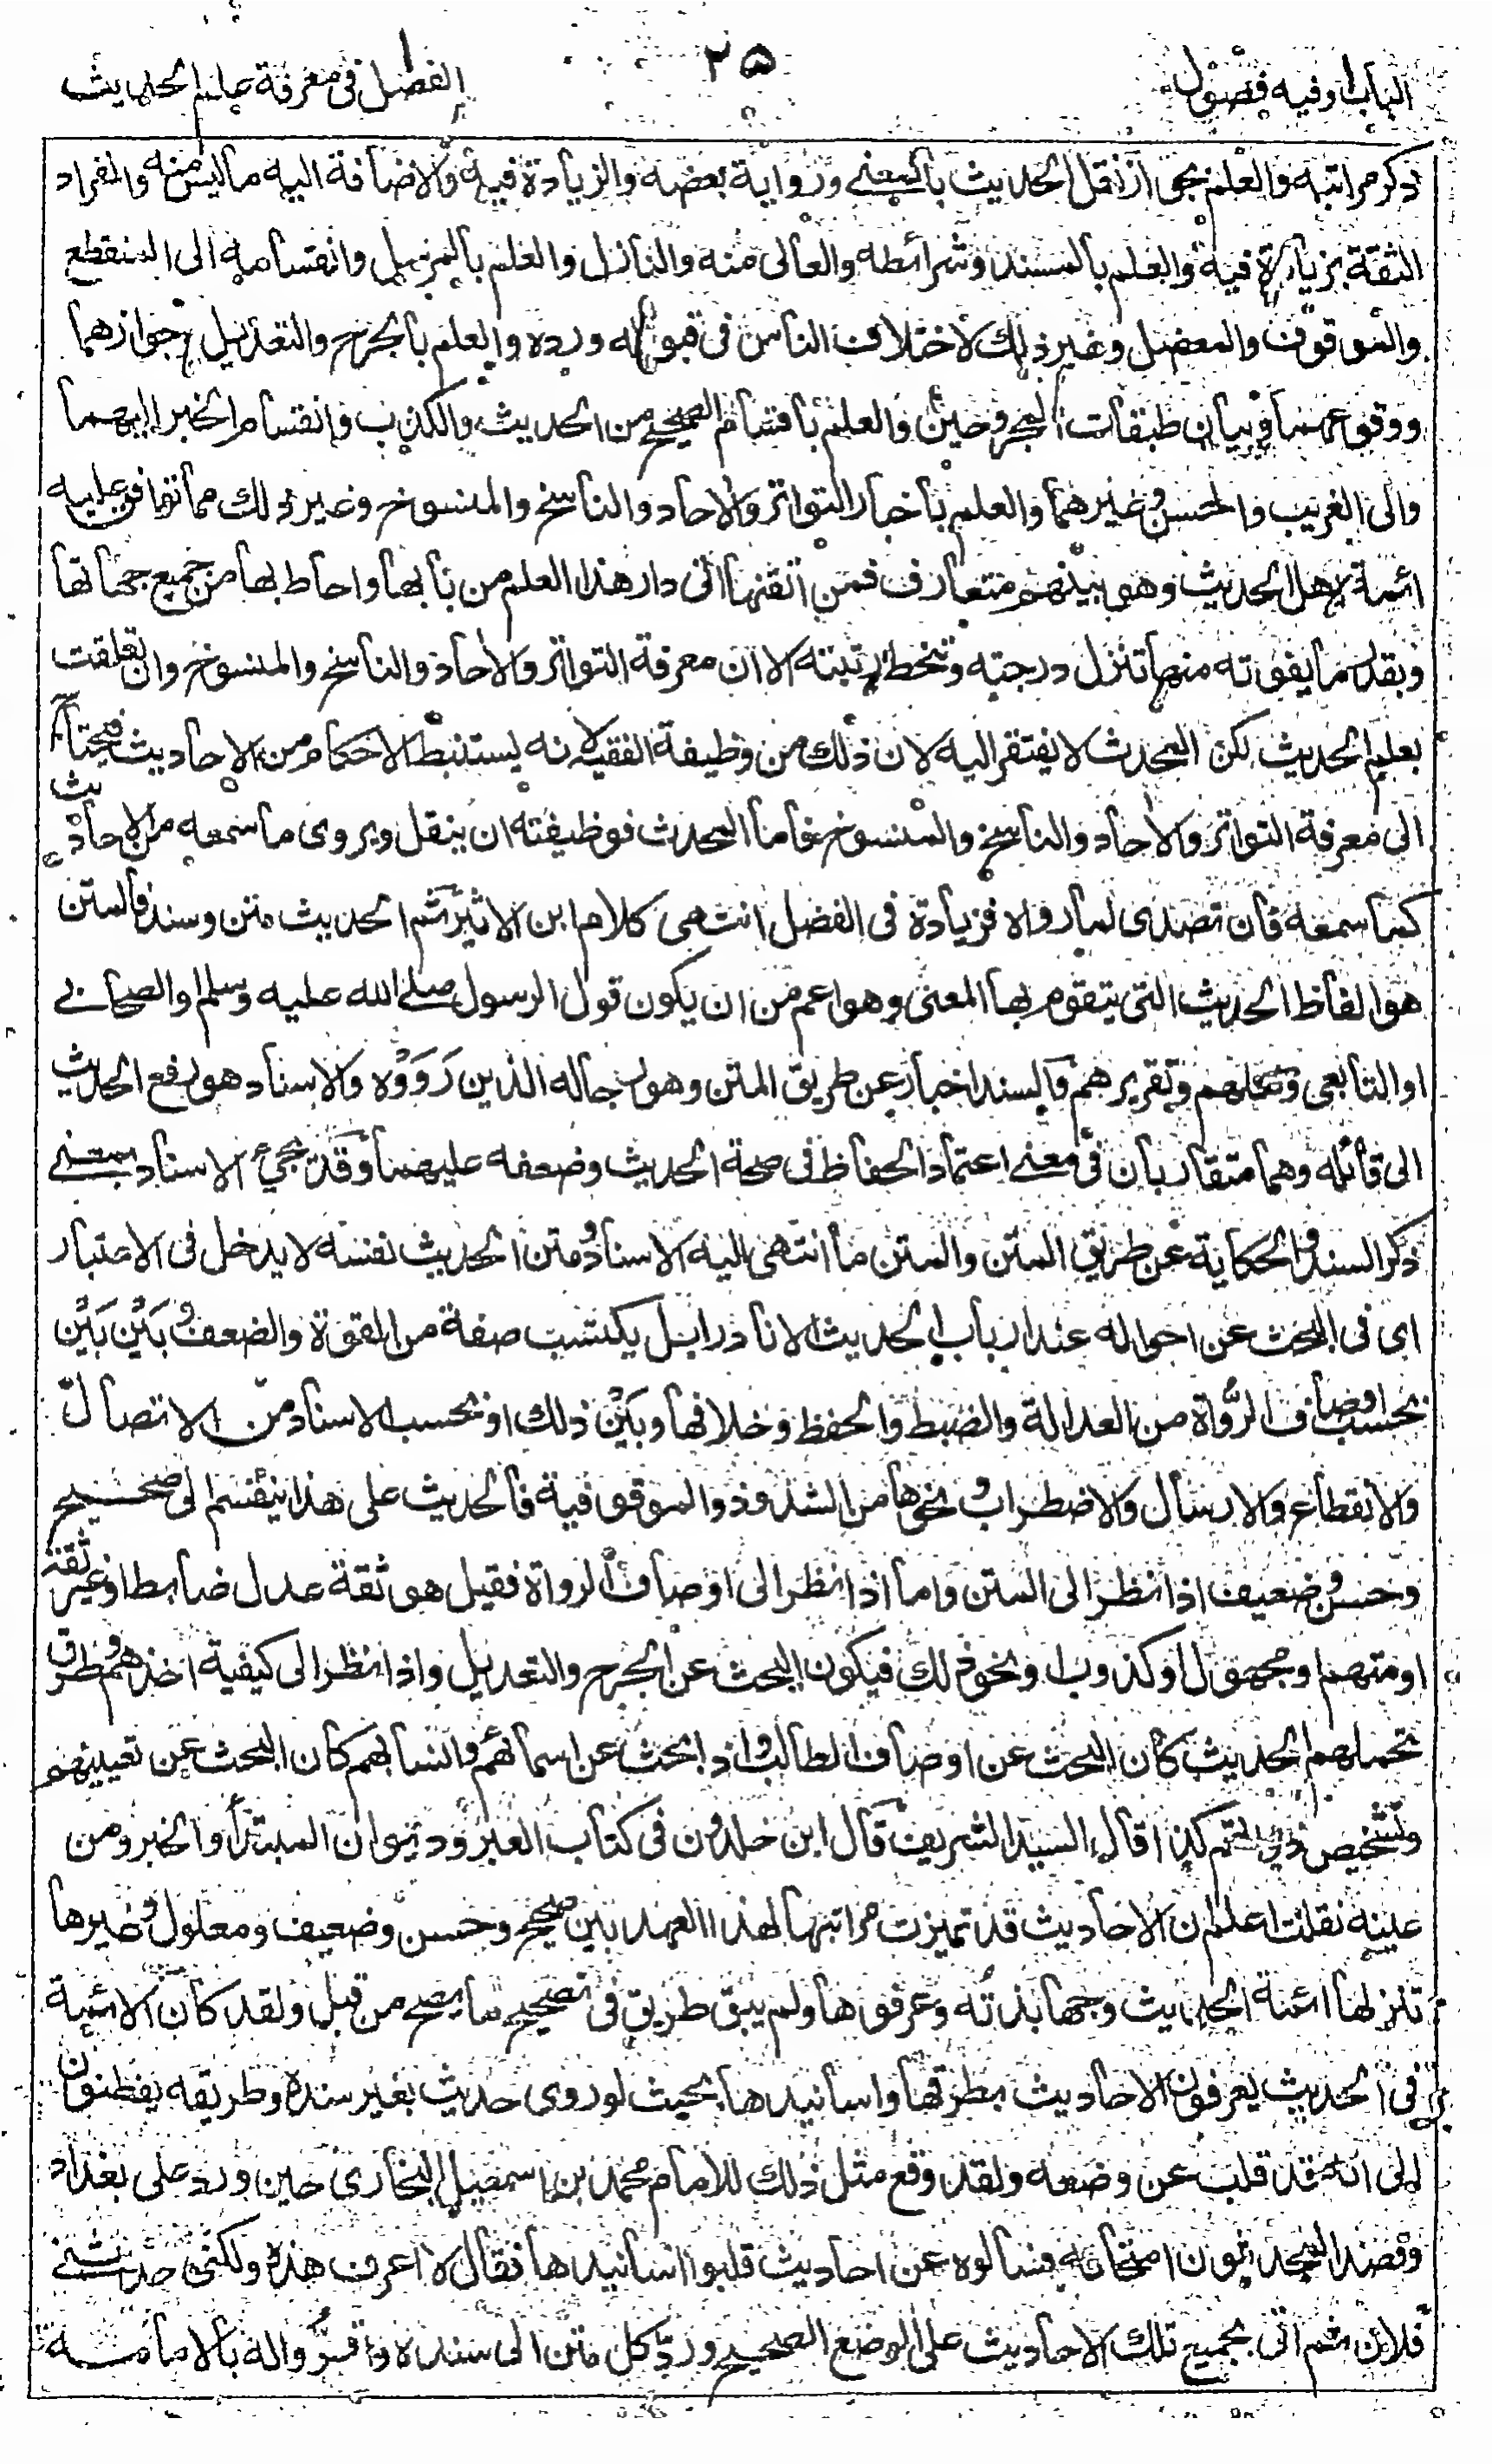 الباب ا وفيه فصول
٢٥
الفصل ا في معرفة علم الحديث
ذكر مراتبه والعلم بجواز نقل الحديث بالمعنى ورواية بعضه والزيادة فيه والاضافة اليه ما ليس منه وانفراد
الثقة بزيادة فيه والعلم بالمسند وشرائطه والعالى منه والنازل والعلم بالمرسل وانقسامه الى المنقطع
والموقوف والمعضل وغير ذلك لاختلاف الناس فى قبوله ورده والعلم بالجرح والتعديل وجوازهما
ووقوعهما وبيان طبقات المجروحين والعلم باقسام الصحيح من الحديث والكذب وانقسام الخبر اليهما
والى الغريب والحسن وغيرهما والعلم باخبار التواتر والاحاد والناسخ والمنسوخ وغير ذلك مما تواف عليه
ائمة اهل الحديث وهو بينهم متعارف فمن اتقنها اتى دار هذا العلم من بابها واحاط بها من جميع جهاتها
وبقدر ما يفوته منها تنزل درجته وتنحط رتبته الا ان معرفة التواتر والاحاد والناسخ والمنسوخ وان تعلقت
بعلم الحديث لكن المحدث لا يفتقر اليه لان ذلك من وظيفة الفقيه لانه يستنبط الاحكام من الاحاديث فيحتاج
الى معرفة التواتر والاحاد والناسخ والمنسوخ فاما المحدث فوظيفته ان ينقل ويروى ما سمعه من الاحاديث
كما سمعه فان تصدى لما رواه فزيادة فى الفضل انتهى كلام ابن الاثير ثم الحديث متن وسند فالمتن
هو الفاظ الحديث التى يتقوم بها المعنى وهو اعم من ان يكون قول الرسول صلى الله عليه وسلم او الصحابى
او التابعى وفعلهم وتقريرهم فالسند اخبار عن طريق المتن وهو رجاله الذين رَوَوْه والاسناد هو رفع الحديث
الى قائله وهما متقاربان فى معنى اعتماد الحفاظ فى صحة الحديث وضعفه عليهما وقد يجئ الاسناد بمعنى
ذكر السند والحكاية عن طريق المتن والمتن ما انتهى اليه الاسناد ومتن الحديث نفسه لا يدخل فى الاعتبار
اى فى البحث عن احواله عند ارباب الحديث الا نادرا بل يكتسب صفة من القوة والضعف وبَيْن بَيْن
بحسب اوصاف الرُّواة من العدالة والضبط والحفظ وخلافها وبَيْن ذلك او بحسب الاسناد من الاتصال
والانقطاع والارسال والاضطراب ونحوها من الشذوذ والموقوفية فالحديث على هذا ينقسم الى صحيح
وحسن وضعيف اذا نظر الى المتن واما اذا نظر الى اوصاف الرواة فقيل هو ثقة عدل ضابط او غير ثقة
او متهم او مجهول او كذوب او نحو ذلك فيكون البحث عن الجرح والتعديل واذا نظر الى كيفية اخذهم وطرق
تحملهم الحديث كان البحث عن اوصاف الطالب واذا بحث عن اسمائهم وانسابهم كان البحث عن تعيينهم
وتشخيص ذواتهم كذا قال السيد الشريف قال ابن خلدون فى كتاب العبر وديوان المبتدأ والخبر ومن
عينه نقلت اعلم ان الاحاديث قد تميزت مراتبها لهذا العهد بين صحيح وحسن وضعيف ومعلول وغيرها
تنزلها ائمة الحديث وجهابذته وعرفوها ولم يبق طريق فى تصحيح ما يصح من قبل ولقد كان الائمة
فى الحديث يعرفون الاحاديث بطرقها واسانيدها بحيث لو روى حديث بغير سنده وطريقه يفطنون
الى انه قد قلب عن وضعه ولقد وقع مثل ذلك للامام محمد بن اسمعيل البخارى حين ورد على بغداد
وقصد المحدثون امتحانه فسألوه عن احاديث قلبوا اسانيدها فقال لا اعرف هذه ولكنى حدثنى
فلان ثم اتى بجميع تلك الاحاديث على الوضع الصحيح وردّ كل متن الى سنده واقرُّوا له بالامامة